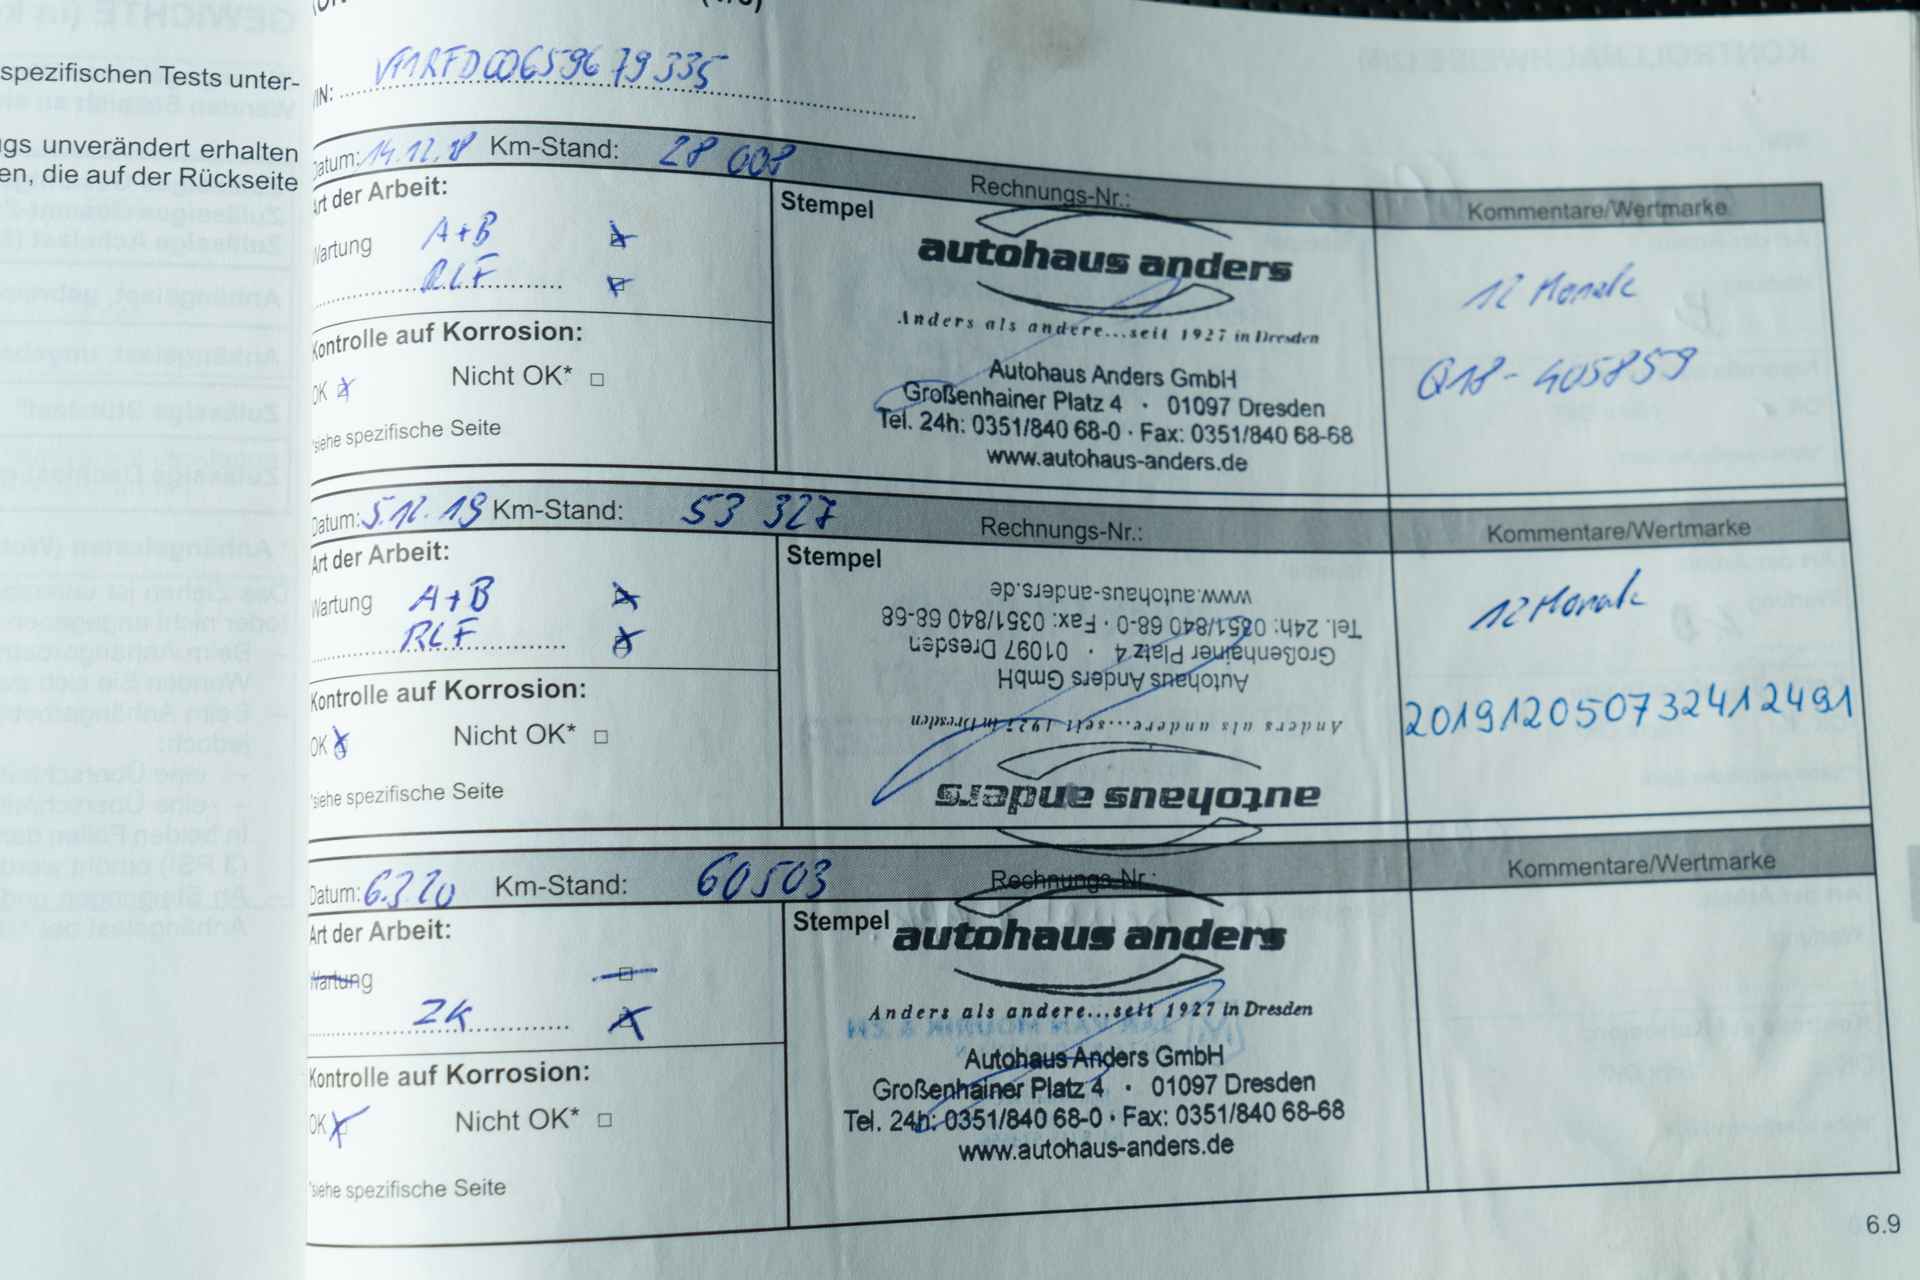 spezifischen Tests unter-
unverändert erhalten
die auf der Rückseite
VIN: VF1RFD00659679335
Datum: 14.12.18 Km-Stand: 28 008 Rechnungs-Nr.: Kommentare/Wertmarke
Art der Arbeit:
Wartung A+B
RLF
Kontrolle auf Korrosion:
OK Nicht OK*
*siehe spezifische Seite
Stempel
autohaus anders
Anders als andere...seit 1927 in Dresden
Autohaus Anders GmbH
Großenhainer Platz 4 · 01097 Dresden
Tel. 24h: 0351/840 68-0 · Fax: 0351/840 68-68
www.autohaus-anders.de
12 Monate
Q18-405859
Datum: 5.12.19 Km-Stand: 53 327 Rechnungs-Nr.: Kommentare/Wertmarke
Art der Arbeit:
Wartung A+B
RLF
Kontrolle auf Korrosion:
OK Nicht OK*
*siehe spezifische Seite
Stempel
autohaus anders
Anders als andere...seit 1927 in Dresden
Autohaus Anders GmbH
Großenhainer Platz 4 · 01097 Dresden
Tel. 24h: 0351/840 68-0 · Fax: 0351/840 68-68
www.autohaus-anders.de
12 Monate
20191205073241 2491
Datum: 6.3.20 Km-Stand: 60503 Rechnungs-Nr.: Kommentare/Wertmarke
Art der Arbeit:
Wartung
ZK
Kontrolle auf Korrosion:
OK Nicht OK*
*siehe spezifische Seite
Stempel
autohaus anders
Anders als andere...seit 1927 in Dresden
Autohaus Anders GmbH
Großenhainer Platz 4 · 01097 Dresden
Tel. 24h: 0351/840 68-0 · Fax: 0351/840 68-68
www.autohaus-anders.de
6.9